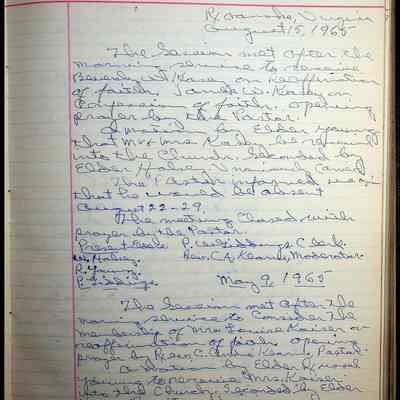 Roanoke, Virginia
August 15, 1965
The Session met after the
morning service to receive
Beverly W. on Reaffirmation
of faith. W. on
Confession of faith. Opening
prayer by the Pastor.
A motion by Elder Young
that Mr & Mrs be received
into the Church. Seconded by
Elder
The Pastor informed
that he would be absent
August 22-29.
The meeting closed with
prayer by the Pastor.
Present Elders P. W. Giddings, Clerk.
Rev. C. A. Moderator
R. Young
P. Giddings
May 9, 1965
The Session met after the
morning service to consider the
membership of Mrs. Louise Kaiser on
reaffirmation of faith. Opening
prayer by Rev. C. Pastor.
A motion by Elder
Young to receive Mrs. Kaiser
into the Church, Seconded by Elder